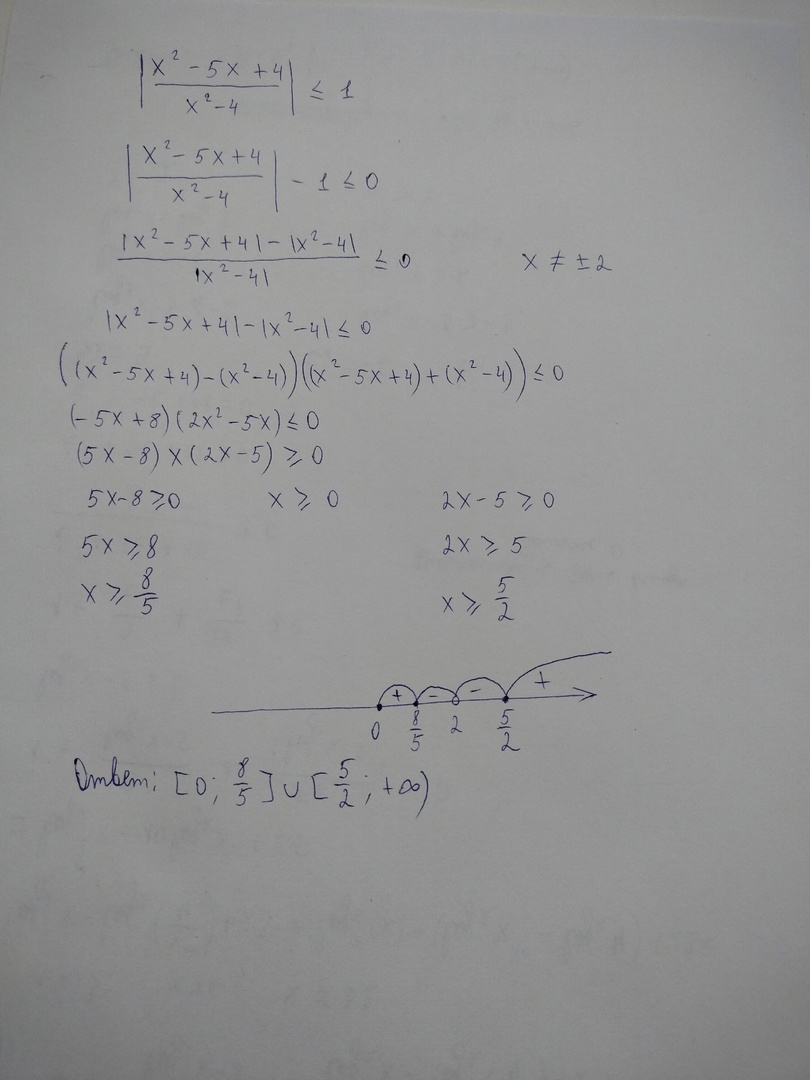 |x² - 5x + 4 / x² - 4| ≤ 1
|x² - 5x + 4 / x² - 4| - 1 ≤ 0
|x² - 5x + 4| - |x² - 4| / |x² - 4| ≤ 0 x ≠ ±2
|x² - 5x + 4| - |x² - 4| ≤ 0
((x² - 5x + 4) - (x² - 4))((x² - 5x + 4) + (x² - 4)) ≤ 0
(-5x + 8)(2x² - 5x) ≤ 0
(5x - 8) x (2x - 5) ≥ 0
5x - 8 ≥ 0 x ≥ 0 2x - 5 ≥ 0
5x ≥ 8 2x ≥ 5
x ≥ 8/5 x ≥ 5/2
+ - - +
0 8/5 2 5/2
Ответ: [0; 8/5] ∪ [5/2; +∞)